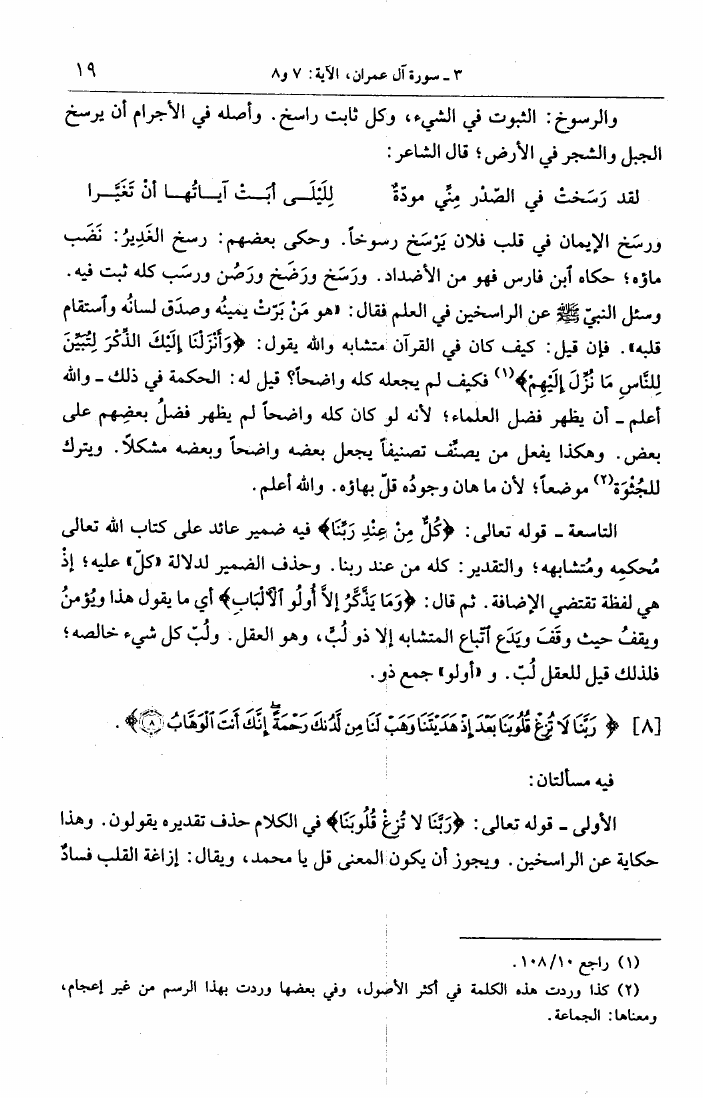 ٣ - سورة آل عمران، الآية: ٧ و٨
١٩
والرسوخ: الثبوت في الشيء، وكل ثابت راسخ. وأصله في الأجرام أن يرسخ
الجبل والشجر في الأرض؛ قال الشاعر:
لقد رَسَختْ في الصّدْر مِنِّي مودّةٌ لِلَيْلَــى أبَــتْ آيــاتُهــا أنْ تَغَيَّــرا
ورسَخ الإيمان في قلب فلان يَرْسَخ رسوخاً. وحكى بعضهم: رسخ الغَدِيرُ: نَضَب
ماؤه؛ حكاه ٱبن فارس فهو من الأضداد. ورَسَخ ورَضَخ ورَصُن ورسَب كله ثبت فيه.
وسئل النبيّ ﷺ عن الراسخين في العلم فقال: «هو مَنْ بَرّتْ يمينُه وصدَق لسانُه وٱستقام
قلبه». فإن قيل: كيف كان في القرآن متشابه والله يقول: ﴿وَأَنْزَلْنَا إِلَيْكَ الذِّكْرَ لِتُبَيِّنَ
لِلنَّاسِ مَا نُزِّلَ إِلَيْهِمْ﴾(١) فكيف لم يجعله كله واضحاً؟ قيل له: الحكمة في ذلك - والله
أعلم - أن يظهر فضل العلماء؛ لأنه لو كان كله واضحاً لم يظهر فضلُ بعضِهم على
بعض. وهكذا يفعل من يصنِّف تصنيفاً يجعل بعضه واضحاً وبعضه مشكلاً. ويترك
للجُثْوَة(٢) موضعاً؛ لأن ما هان وجودُه قلّ بهاؤه. والله أعلم.
التاسعة - قوله تعالى: ﴿كُلٌّ مِنْ عِنْدِ رَبِّنَا﴾ فيه ضمير عائد على كتاب الله تعالى
مُحكمِه ومُتشابهه؛ والتقدير: كله من عند ربنا. وحذف الضمير لدلالة «كلّ» عليه؛ إذْ
هي لفظة تقتضي الإضافة. ثم قال: ﴿وَمَا يَذَّكَّرُ إلاَّ أُولُو ٱلأَلْبَابِ﴾ أي ما يقول هذا ويُؤمنُ
ويقفُ حيث وقَفَ ويَدَع ٱتّباع المتشابه إلا ذو لُبٍّ، وهو العقل. ولُبّ كل شيء خالصه؛
فلذلك قيل للعقل لُبّ. و «أولو» جمع ذو.
[٨] ﴿رَبَّنَا لَا تُزِغْ قُلُوبَنَا بَعْدَ إِذْ هَدَيْتَنَا وَهَبْ لَنَا مِن لَّدُنكَ رَحْمَةً ۚ إِنَّكَ أَنتَ ٱلْوَهَّابُ ۝٨﴾.
فيه مسألتان:
الأولى - قوله تعالى: ﴿رَبَّنَا لا تُزِغْ قُلُوبَنَا﴾ في الكلام حذف تقديره يقولون. وهذا
حكاية عن الراسخين. ويجوز أن يكون المعنى قل يا محمد، ويقال: إزاغة القلب فسادٌ
(١) راجع ١٠٨/١٠.
(٢) كذا وردت هذه الكلمة في أكثر الأصول، وفي بعضها وردت بهذا الرسم من غير إعجام،
ومعناها: الجماعة.